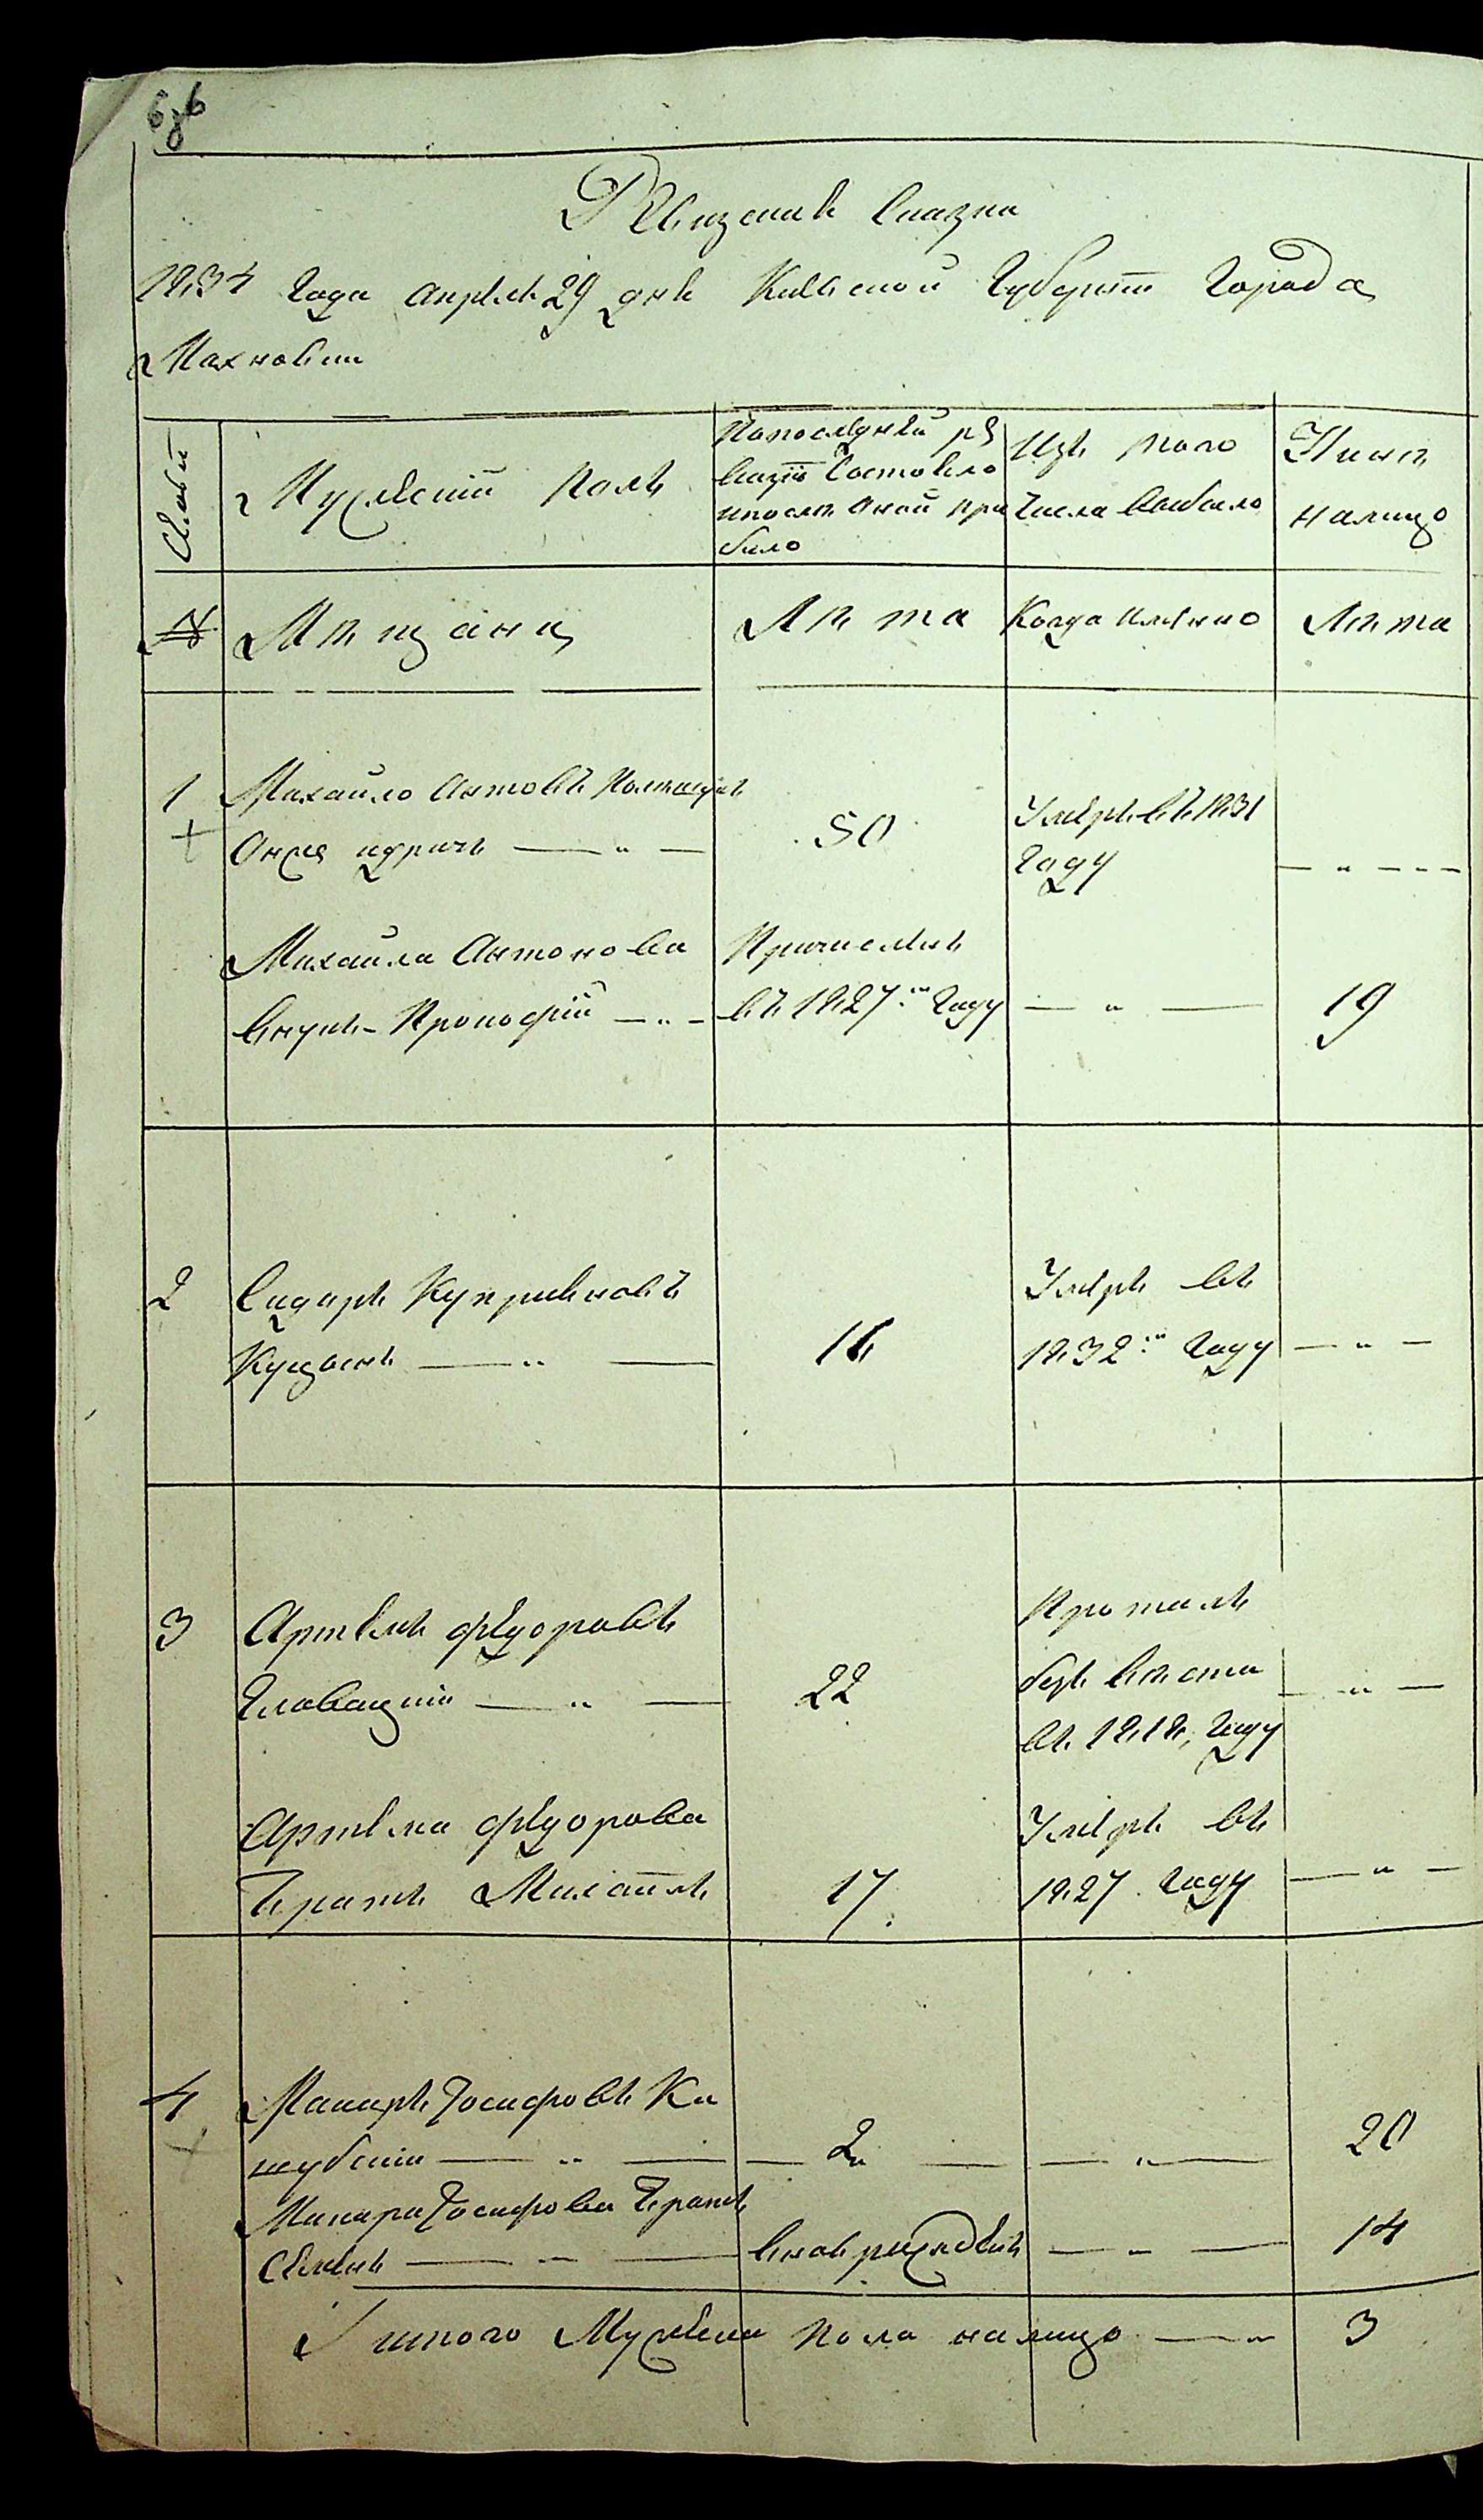 Ревизская Сказка
1834 Года Апреля 29 дня Киевской Губернии Города
Махновки
Семьи
Мужеский Полъ
Попоследней ре
визіи Состояло
ипосле оной при
было
Изъ того
Числа Выбыло
Нынѣ
налицо
№
Мѣщане
Лѣта
Когда имянно
Лѣта
1
Михайло Антовъ
50
Умеръ въ 1831
Году
Михайла Антонова
Внукъ Прокофій
Причисленъ
въ 1827мъ Году
19
2
Сидоръ Куприяновъ
16
Умеръ въ
1832мъ Году
3
Артемъ Федоровъ
Главацкій
22
Пропалъ
безъ вѣсти
въ 1818, Году
Артема Федорова
Братъ
17
Умеръ въ
1827 Году
4
Макаръ Іосифовъ Ка
шубскій
2
20
Макара Іосифова Братъ
Семенъ
вновь рожденъ
14
Итого Мужеска пола налицо
3